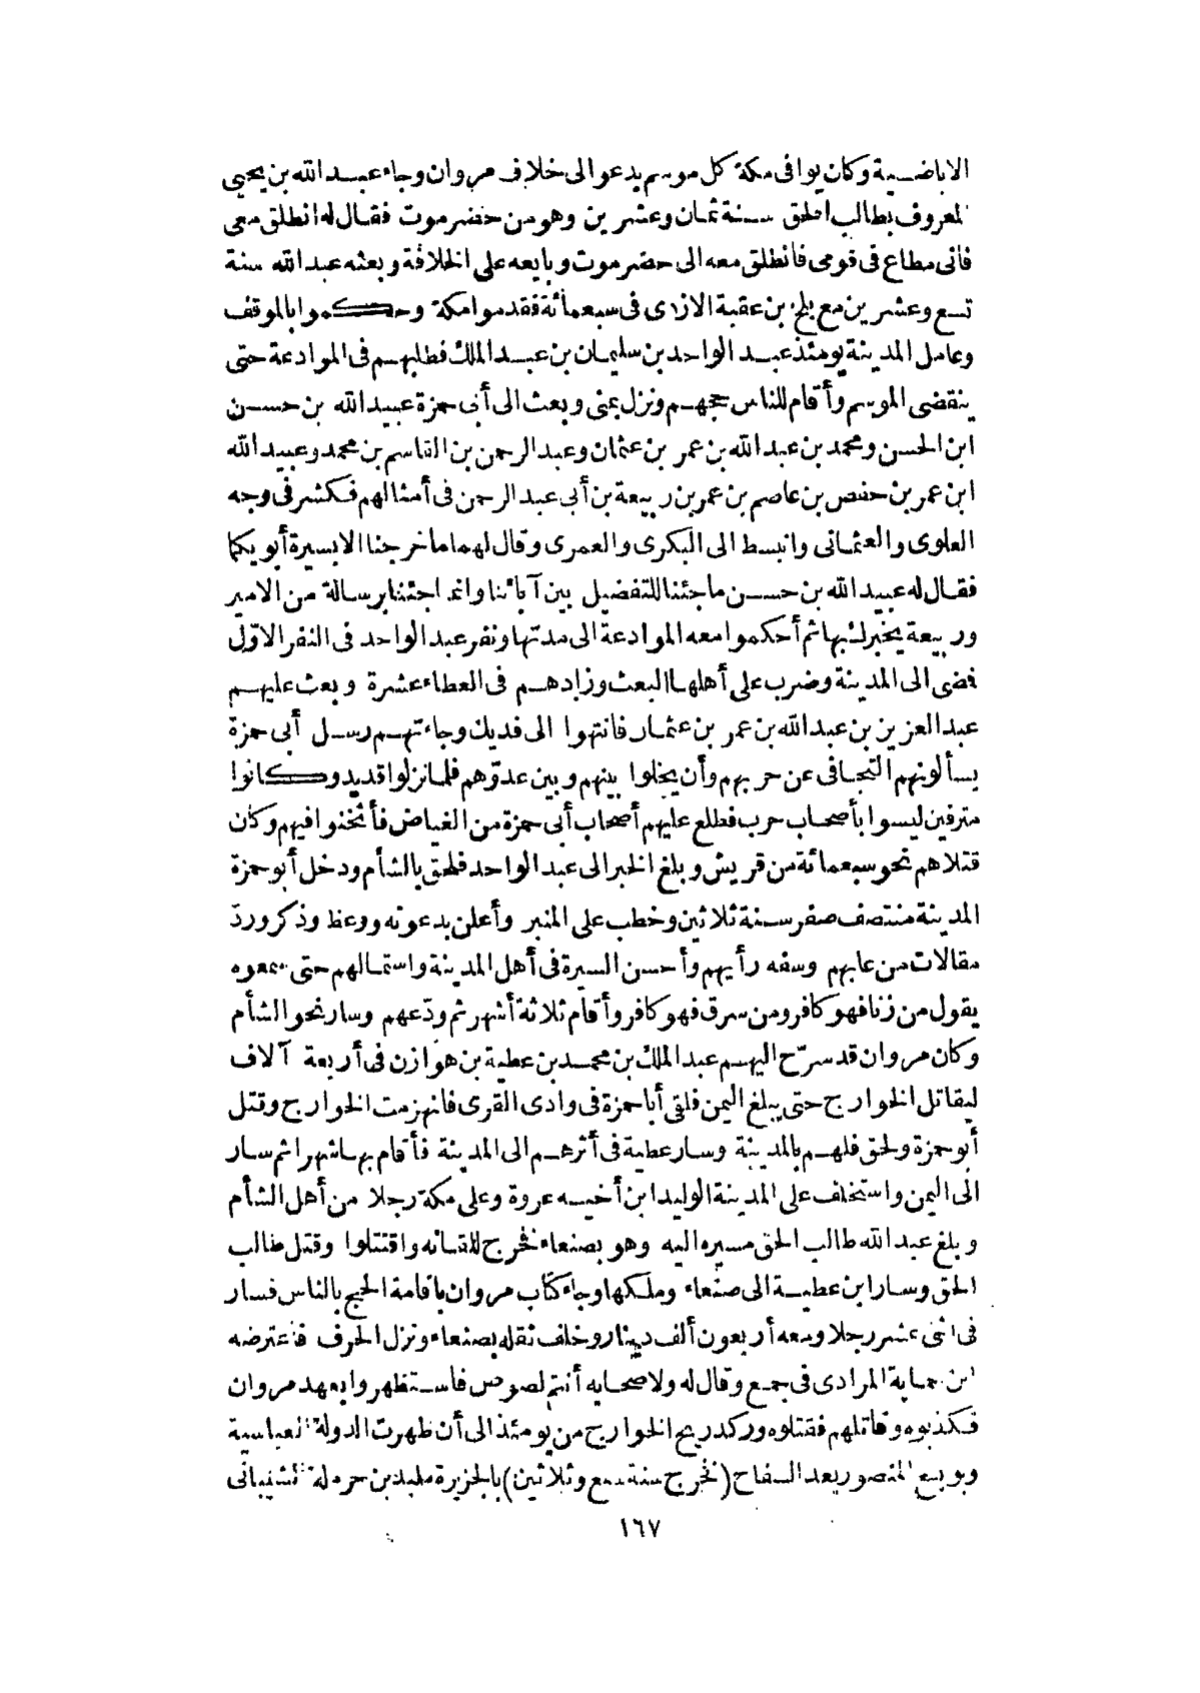 الاباضية وكان يوافى مكة كل موسم يدعو الى خلاف مروان وجاء عبد الله بن يحيى
المعروف بطالب الحق سنة ثمان وعشرين وهو من حضرموت فقال له انطلق معى
فانى مطاع فى قومى فانطلق معه الى حضرموت وبايعه على الخلافة وبعثه عبد الله سنة
تسع وعشرين مع بلخ بن عقبة الازدى فى سبعمائة فقدموا مكة وحكموا بالموقف
وعامل المدينة يومئذ عبد الواحد بن سليمان بن عبد الملك فطلبهم فى الموادعة حتى
ينقضى الموسم وأقام للناس حجهم ونزل بمنى وبعث الى أبى حمزة عبيد الله بن حسن
ابن الحسن ومحمد بن عبد الله بن عمر بن عثمان وعبد الرحمن بن القاسم بن محمد وعبيد الله
ابن عمر بن حفص بن عاصم بن عمر بن ربيعة بن أبى عبد الرحمن فى أمثالهم فكشر فى وجه
العلوى والعثمانى وانبسط الى البكرى والعمرى وقال لهما ما خرجنا الا بسيرة أبويكما
فقال له عبيد الله بن حسن ما جئنا للتفضيل بين آبائنا وانما جئنا برسالة من الامير
وربيعة يخبرك بها ثم أحكموا معه الموادعة الى مدتها ونفر عبد الواحد فى النفر الاوّل
فضى الى المدينة وضرب على أهلها البعث وزادهم فى العطاء عشرة وبعث عليهم
عبد العزيز بن عبد الله بن عمر بن عثمان فانتهوا الى فديك وجاءتهم رسل أبى حمزة
يسألونهم التجافى عن حربهم وأن يخلوا بينهم وبين عدوّهم فلما نزلوا قديد وكانوا
مترفين ليسوا بأصحاب حرب فطلع عليهم أصحاب أبى حمزة من الغياض فأثخنوا فيهم وكان
قتلاهم نحو سبعمائة من قريش وبلغ الخبر الى عبد الواحد فلحق بالشأم ودخل أبو حمزة
المدينة منتصف صفر سنة ثلاثين وخطب على المنبر وأعلن بدعوته ووعظ وذكر وردّ
مقالات من عابهم وسفه رأيهم وأحسن السيرة فى أهل المدينة واستمالهم حتى سمعوه
يقول من زنا فهو كافر ومن سرق فهو كافر وأقام ثلاثة أشهر ثم ودّعهم وسار نحو الشأم
وكان مروان قد سرّح اليهم عبد الملك بن محمد بن عطية بن هوازن فى أربعة آلاف
ليقاتل الخوارج حتى يبلغ اليمن فلقى أبا حمزة فى وادى القرى فانهزمت الخوارج وقتل
أبو حمزة ولحق فلهم بالمدينة وسار عطية فى أثرهم الى المدينة فأقام بها شهرا ثم سار
الى اليمن واستخلف على المدينة الوليد ابن أخيه عروة وعلى مكة رجلا من أهل الشأم
وبلغ عبد الله طالب الحق مسيره اليه وهو بصنعاء فخرج للقائه واقتتلوا وقتل طالب
الحق وسار ابن عطية الى صنعاء وملكها وجاء كتاب مروان باقامة الحج بالناس فسار
فى اثنى عشر رجلا ومعه أربعون ألف دينار وخلف ثقله بصنعاء ونزل الحرف فاعترضه
ابن حماية المرادى فى جمع وقال له ولاصحابه أنتم لصوص فاستظهروا بعهد مروان
فكذبوه وقاتلهم فقتلوه وركد ريح الخوارج من يومئذ الى أن ظهرت الدولة العباسية
وبويع المنصور بعد السفاح (فخرج سنة سبع وثلاثين) بالجزيرة ملبد بن حرملة الشيبانى
١٦٧